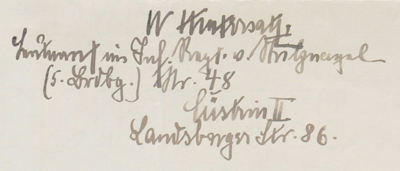 W Hintersatz,
Leutnant im Inf. Regt. v. Stülpnagel
(5. Brdbg.) Nr. 48
Cüstrin II
Landsberger Str. 86.